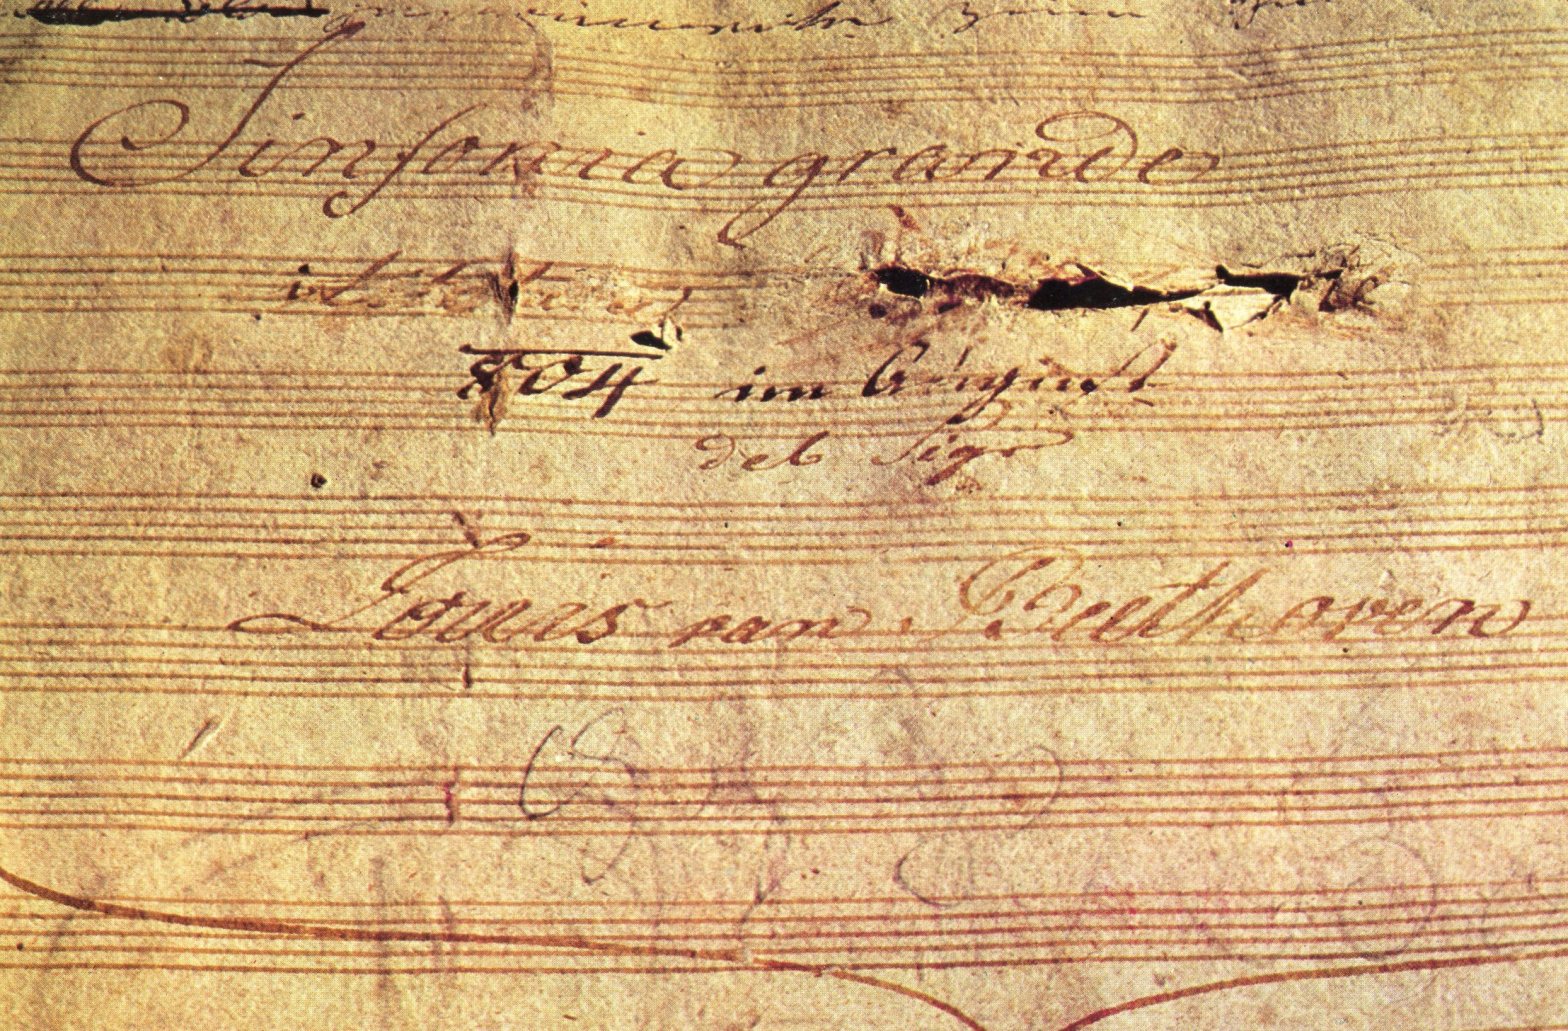 Sinfonia grande
804 im August
del Sigr
Louis van Beethoven